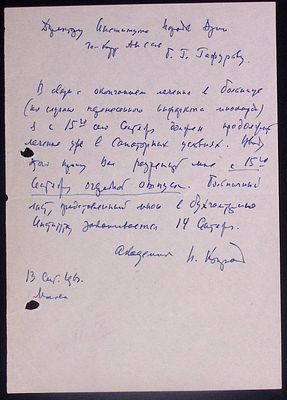 Директору Института Народов Азии
чл-корр АН СССР
Б. Г. Гафурову.
В связи с окончанием лечения в больнице
(по случаю перенесенного инфаркта миокарда)
я с 15го сего Сентября должен продолжать
лечение уже в санаторных условиях.
прошу Вас разрешить мне с 15го
Сентября очередной отпуск. Больничный
лист, представленный мною в бухгалтерию
Института заканчивается 14 Сентября.
Академик Н. Конрад
13 Сент. 196
Москва